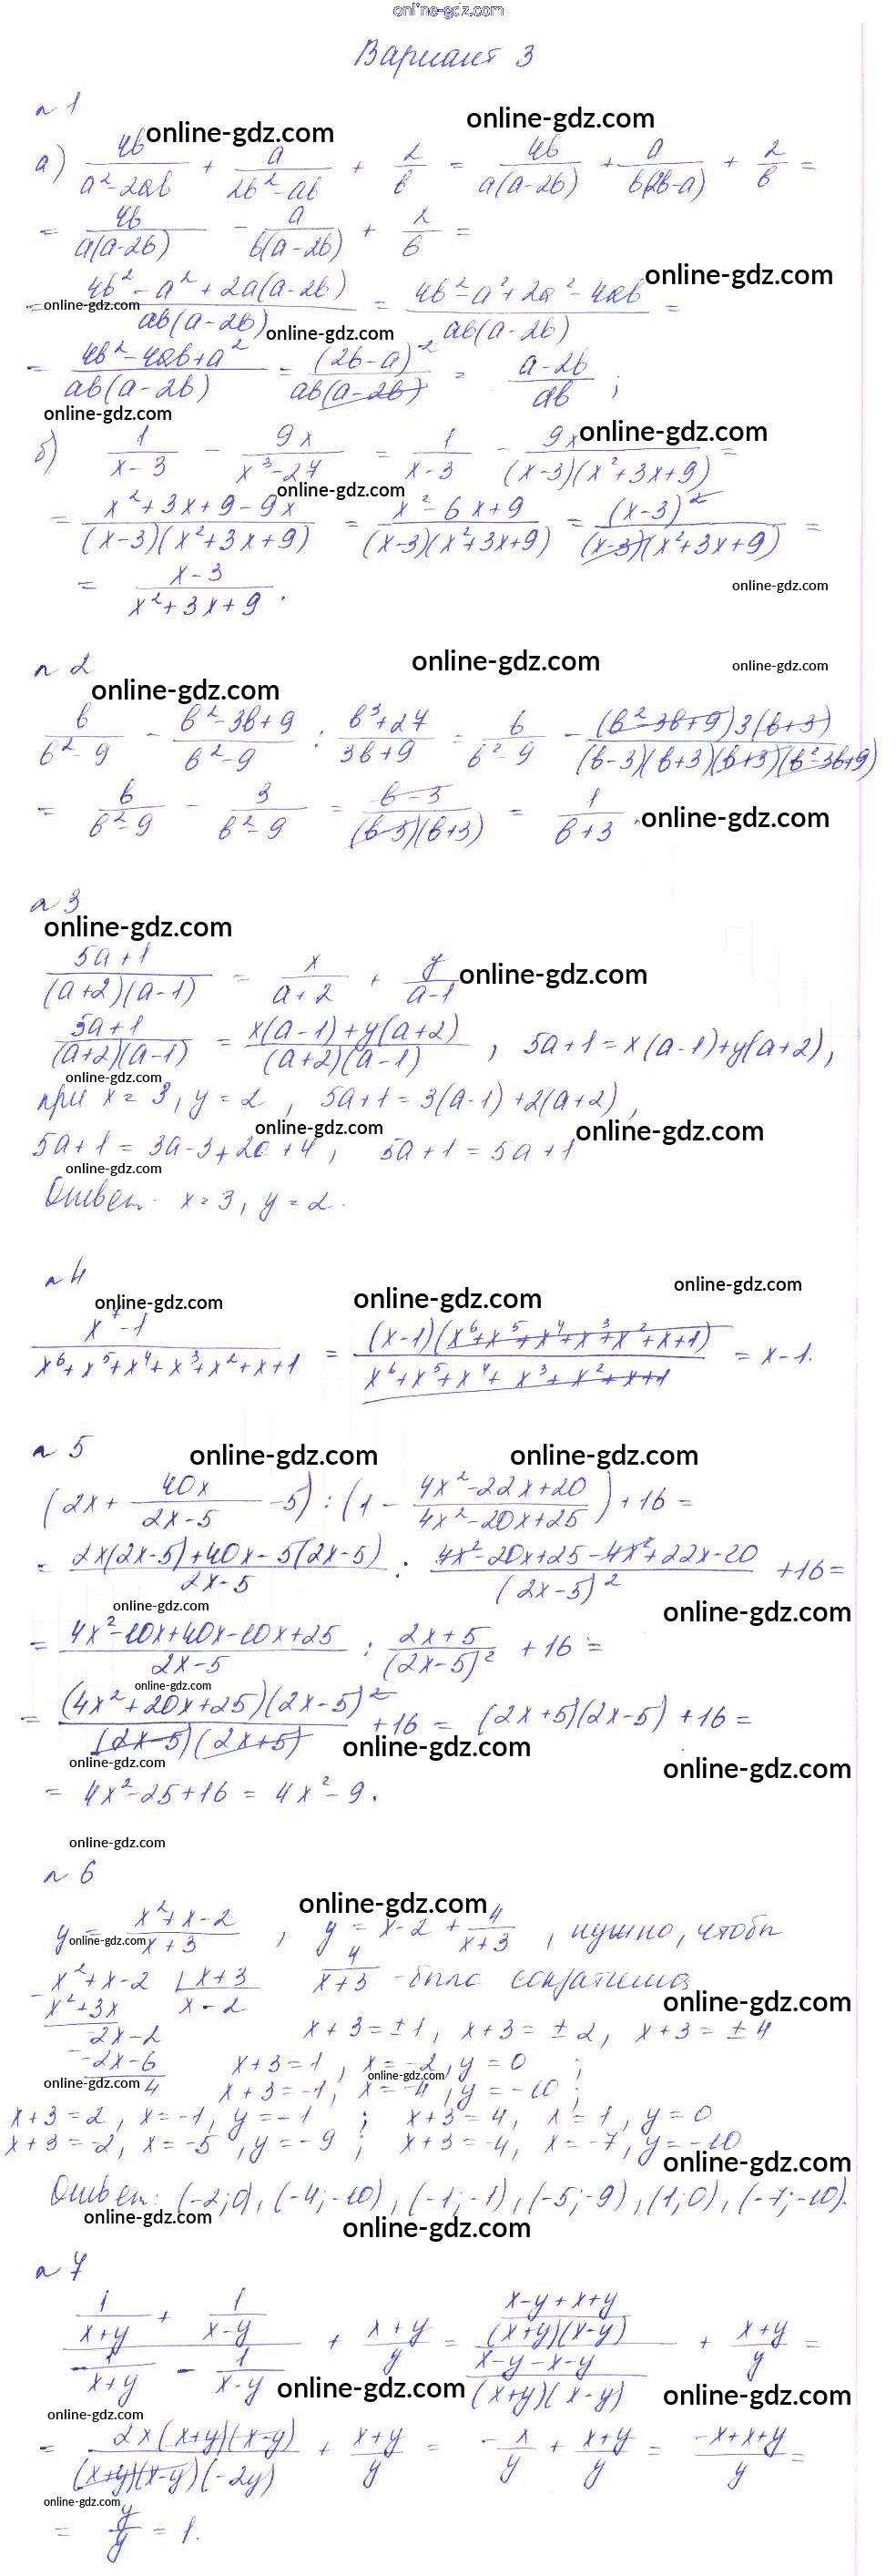 online-gdz.com
Вариант 3
n 1
online-gdz.com online-gdz.com
а) 4b/(a²-2ab) + a/(2b²-ab) + 2/b = 4b/(a(a-2b)) + a/(b(2b-a)) + 2/b =
= 4b/(a(a-2b)) - a/(b(a-2b)) + 2/b =
online-gdz.com
= (4b²-a²+2a(a-2b))/(ab(a-2b)) = (4b²-a²+2a²-4ab)/(ab(a-2b)) =
online-gdz.com online-gdz.com
= (4b²-4ab+a²)/(ab(a-2b)) = (2b-a)²/(ab(a-2b)) = (a-2b)/(ab) ;
online-gdz.com online-gdz.com
б) 1/(x-3) - 9x/(x³-27) = 1/(x-3) - 9x/((x-3)(x²+3x+9)) =
online-gdz.com
= (x²+3x+9-9x)/((x-3)(x²+3x+9)) = (x²-6x+9)/((x-3)(x²+3x+9)) = (x-3)²/((x-3)(x²+3x+9)) =
= (x-3)/(x²+3x+9) .
online-gdz.com
n 2
online-gdz.com online-gdz.com
online-gdz.com
b/(b²-9) - (b²-3b+9)/(b²-9) : (b³+27)/(3b+9) = b/(b²-9) - ((b²-3b+9)3(b+3))/((b-3)(b+3)(b+3)(b²-3b+9))
= b/(b²-9) - 3/(b²-9) = (b-3)/((b-3)(b+3)) = 1/(b+3) .
online-gdz.com
n 3
online-gdz.com
(5a+1)/((a+2)(a-1)) = x/(a+2) + y/(a-1)
online-gdz.com
(5a+1)/((a+2)(a-1)) = (x(a-1)+y(a+2))/((a+2)(a-1)) , 5a+1=x(a-1)+y(a+2),
online-gdz.com
при x=3, y=2 , 5a+1=3(a-1)+2(a+2),
online-gdz.com online-gdz.com
5a+1=3a-3+2a+4, 5a+1=5a+1
online-gdz.com
Ответ: x=3, y=2.
n 4
online-gdz.com online-gdz.com online-gdz.com
(x⁷-1)/(x⁶+x⁵+x⁴+x³+x²+x+1) = ((x-1)(x⁶+x⁵+x⁴+x³+x²+x+1))/(x⁶+x⁵+x⁴+x³+x²+x+1) = x-1.
n 5
online-gdz.com online-gdz.com
(2x + 40x/(2x-5) - 5) : (1 - (4x²-22x+20)/(4x²-20x+25)) + 16 =
= (2x(2x-5)+40x-5(2x-5))/(2x-5) : (4x²-20x+25-4x²+22x-20)/(2x-5)² +16=
online-gdz.com online-gdz.com
= (4x²-10x+40x-10x+25)/(2x-5) : (2x+5)/(2x-5)² +16 =
online-gdz.com
= ((4x²+20x+25)(2x-5)²)/((2x-5)(2x+5)) +16 = (2x+5)(2x-5) +16 =
online-gdz.com online-gdz.com online-gdz.com
= 4x²-25+16 = 4x²-9.
online-gdz.com
n 6
online-gdz.com
y = (x²+x-2)/(x+3) , y = x-2 + 4/(x+3) , нужно, чтобы
online-gdz.com
x²+x-2 | x+3 4/(x+3) - была сократима
x²+3x x-2
online-gdz.com
-2x-2 x+3=±1, x+3=±2, x+3=±4
-2x-6 x+3=1, x=-2, y=0 ;
online-gdz.com online-gdz.com
4 x+3=-1, x=-4, y=-10 ;
x+3=2, x=-1, y=-1 ; x+3=4, x=1, y=0
x+3=-2, x=-5, y=-9 ; x+3=-4, x=-7, y=-10
online-gdz.com
Ответ: (-2;0), (-4;-10), (-1;-1), (-5;-9), (1;0), (-7;-10).
online-gdz.com online-gdz.com
n 7
(1/(x+y) + 1/(x-y))/(1/(x+y) - 1/(x-y)) + (x+y)/y = ((x-y+x+y)/((x+y)(x-y)))/((x-y-x-y)/((x+y)(x-y))) + (x+y)/y =
online-gdz.com online-gdz.com
online-gdz.com
= (2x(x+y)(x-y))/((x+y)(x-y)(-2y)) + (x+y)/y = -x/y + (x+y)/y = (-x+x+y)/y =
online-gdz.com
= y/y = 1.